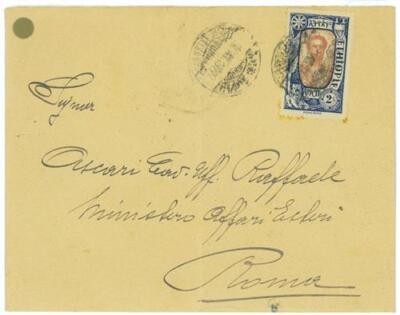 ETHIOPIE
2
Signor
Ascari Cav. Uff. Raffaele
Ministero Affari Esteri
Roma